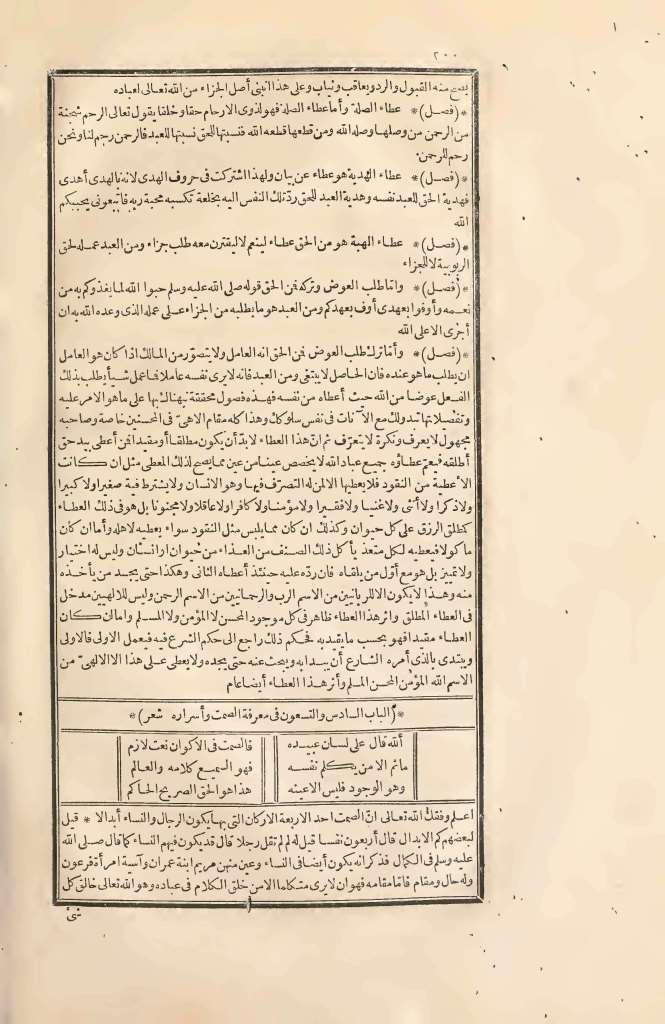 ٢٠٠
يصح منه القبول والرد ويعاقب ويثاب وعلى هذا انبنى أصل الجزاء من الله تعالى لعباده
*(فصل)* عطاء الصلة وأما عطاء الصلة فهو لذوى الارحام حقا وخلقا يقول تعالى الرحم شجنة
من الرحمن من وصلها وصله الله ومن قطعها قطعه الله فنسبتها للحق نسبتها للعبد فالرحمن رحم لنا ونحن
رحم للرحمن
*(فصل)* عطاء الهدية هو عطاء عن بيان ولهذا اشتركت فى حروف الهدى لانه بالهدى أهدى
فهدية الحق للعبد نفسه وهدية العبد للحق ردّ تلك النفس اليه بخلعة تكسبه محبة ربه فاتبعونى يحببكم
الله
*(فصل)* عطاء الهبة هو من الحق عطاء لينعم لا ليقترن معه طلب جزاء ومن العبد عمله لحق
الربوبية لا للجزاء
*(فصل)* وأما طلب العوض وتركه فمن الحق قوله صلى الله عليه وسلم حبوا الله لما يغذوكم به من
نعمه وأوفوا بعهدى أوف بعهدكم ومن العبد هو ما يطلبه من الجزاء على عمله الذى وعده الله به ان
أجرى الا على الله
*(فصل)* وأما ترك طلب العوض فمن الحق انه العامل ولا يتصوّر من المالك اذا كان هو العامل
ان يطلب ما هو عنده فان الحاصل لا يبتغى ومن العبد فانه لا يرى نفسه عاملا فاعمل شيأ يطلب بذلك
الفعل عوضا من الله حيث أعطاه من نفسه فهذه فصول محققة نبهناك بها على ما هو الامر عليه
وتفصيلاتها تبدو لك مع الآنات فى نفس سلوكك وهذا كله مقام الاهىّ فى المحسنين خاصة وصاحبه
مجهول لا يعرف ونكرة لا يتعرّف ثم انّ هذا العطاء لا بدّ أن يكون مطلقا أو مقيدا فمن أعطى بيد حق
أطلقه فيعمّ عطاؤه جميع عباد الله لا يخصص عينا من عين مما يصح لذلك المعطى مثل ان كانت
الأعطية من النقود فلا يعطيها الا لمن له التصرّف فيها وهو الانسان ولا يشترط فيه صغيرا ولا كبيرا
ولا ذكرا ولا أنثى ولا غنيا ولا فقيرا ولا مؤمنا ولا كافرا ولا عاقلا ولا مجنونا بل هو فى ذلك العطاء
كمطلق الرزق على كل حيوان وكذلك ان كان مما يلبس مثل النقود سواء يعطيه لاهله وأما ان كان
مأكولا فيعطيه لكل متغذ يأكل ذلك الصنف من الغذاء من حيوان او انسان وليس له اختيار
ولا تمييز بل هو مع أوّل من يلقاه فان ردّه عليه حينئذ أعطاه الثانى وهكذا حتى يجد من يأخذه
منه وهذا لا يكون الا للربانيين من الاسم الرب والرحمانيين من الاسم الرحمن وليس للالهيين مدخل
فى العطاء المطلق واثر هذا العطاء ظاهر فى كل موجود المحسن لا المؤمن ولا المسلم واما ان كان
العطاء مقيدا فهو بحسب ما يقيد به فحكم ذلك راجع الى حكم الشرع فيه فيعمل الاولى فالاولى
ويبتدى بالذى أمره الشارع أن يبدا به ويبحث عنه حتى يجده ولا يعطى على هذا الا الالهىّ من
الاسم الله المؤمن المحسن المسلم وأثر هذا العطاء أيضا عام
*(الباب السادس والتسعون فى معرفة الصمت وأسراره شعر)*
ألله قال على لسان عبيده فالصمت فى الأكوان نعت لازم
ما ثم الا من يكلم نفسه فهو السميع كلامه والعالم
وهو الوجود فليس الا عينه هذا هو الحق الصريح الحاكم
اعلم وفقك الله تعالى انّ الصمت احد الاربعة الاركان التى بها يكون الرجال والنساء أبدالا * قيل
لبعضهم كم الابدال قال أربعون نفسا قيل له لم لم تقل رجلا قال قد يكون فيهم النساء كما قال صلى الله
عليه وسلم فى الكمال فذكر انه يكون أيضا فى النساء وعين منهن مريم ابنة عمران وآسية امرأة فرعون
وله حال ومقام فاما مقامه فهو ان لا يرى متكاما الا من خلق الكلام فى عباده وهو الله تعالى خالق كل
شئ